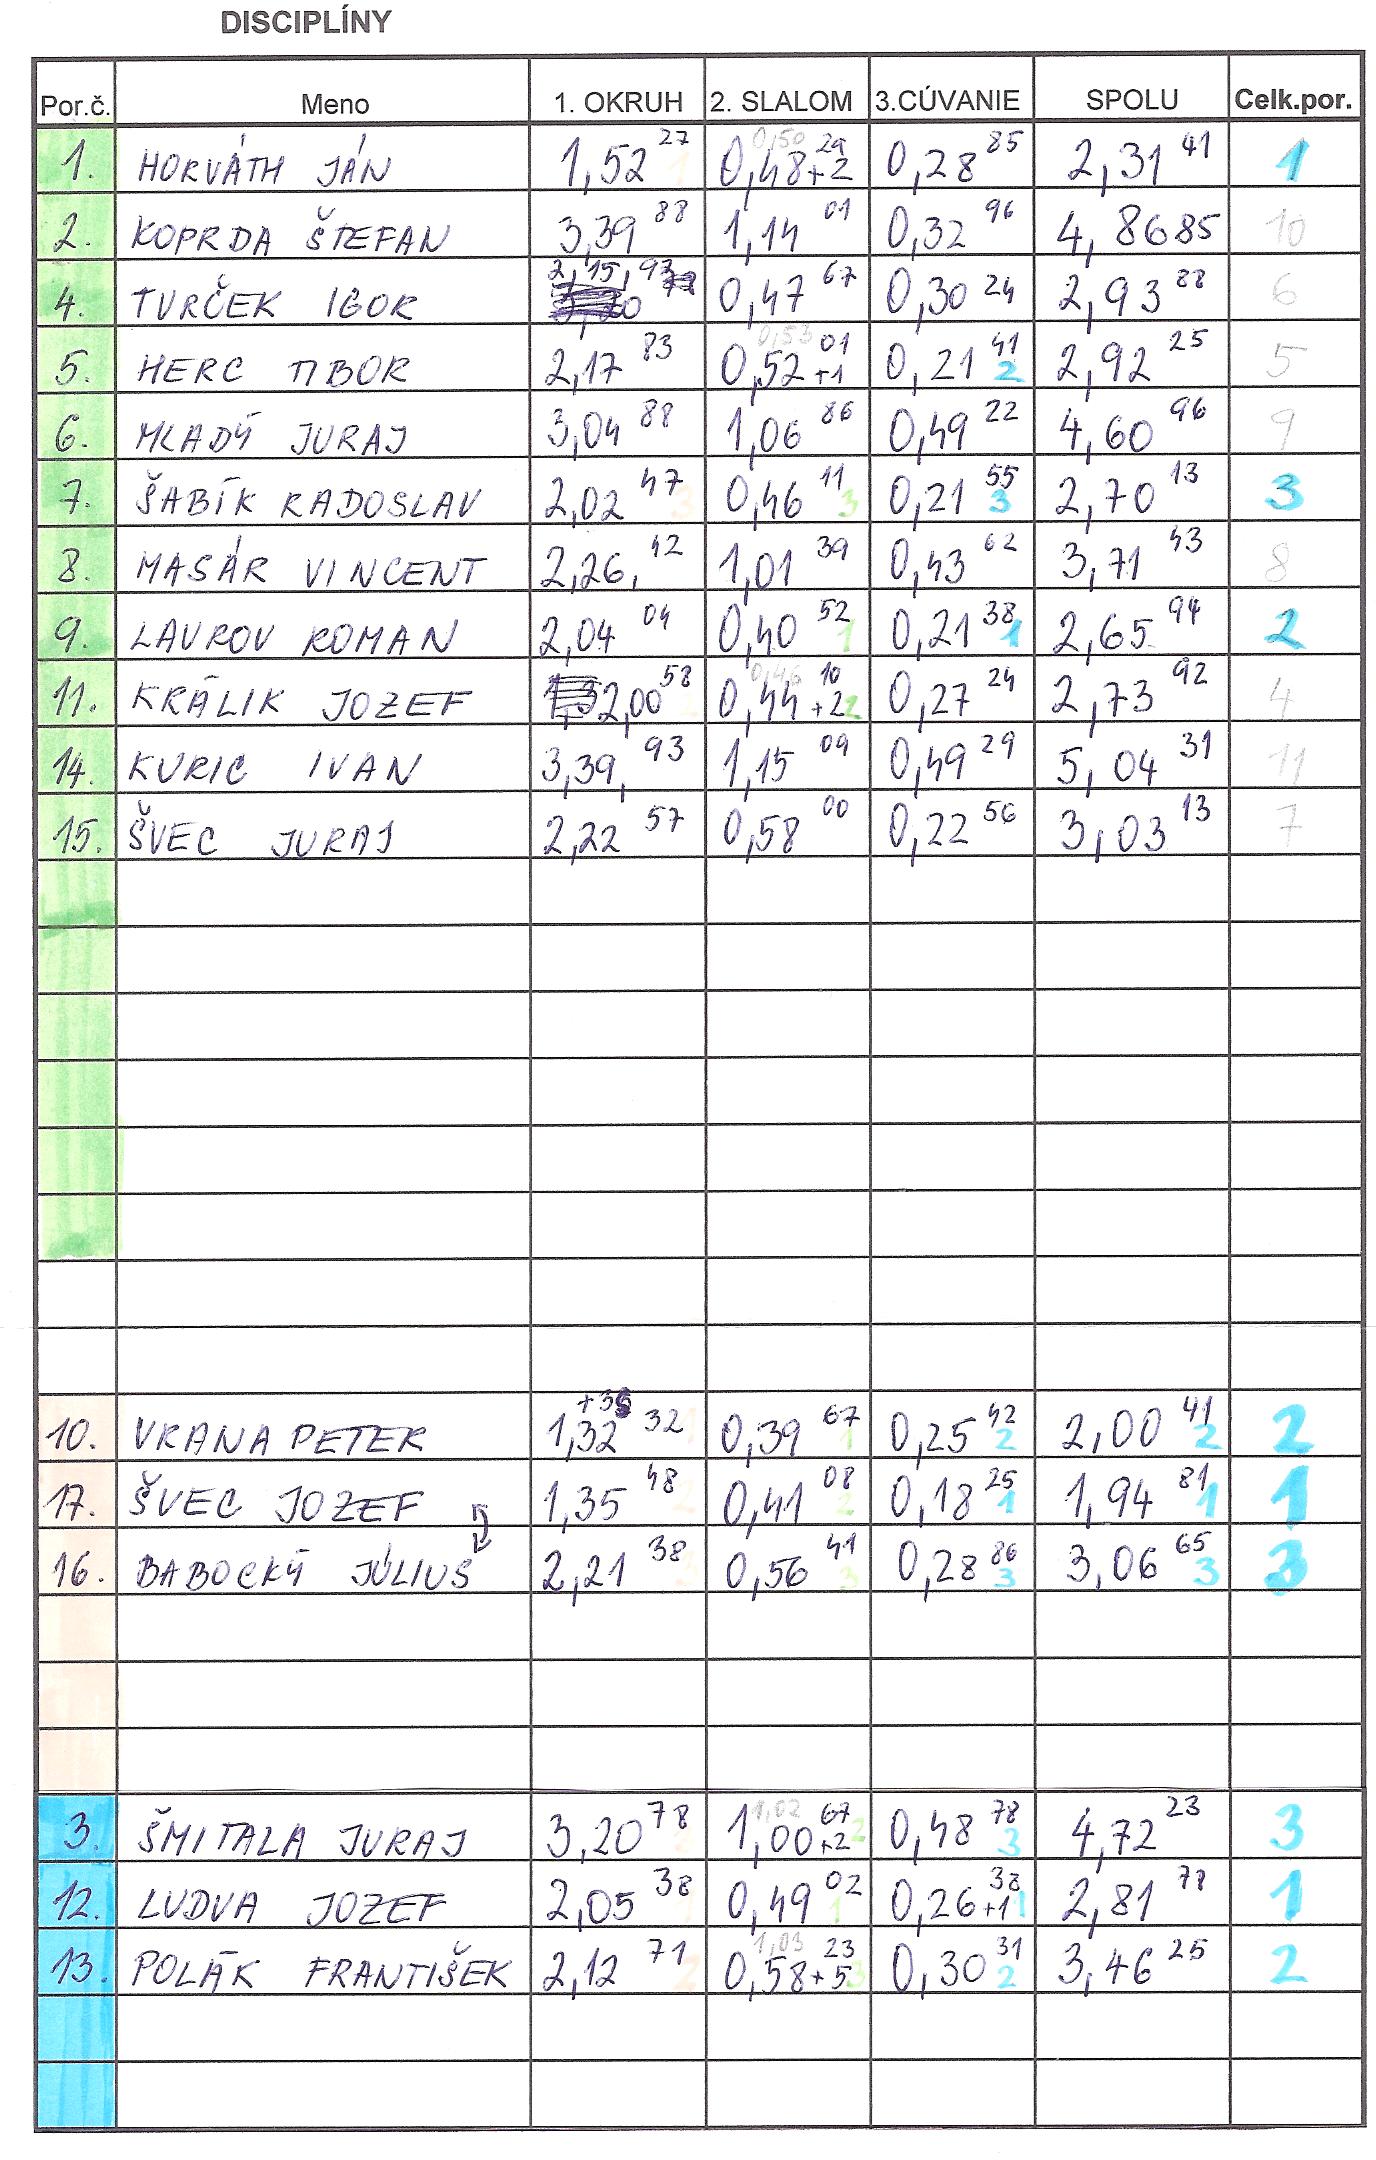 DISCIPLÍNY
Por.č. Meno 1. OKRUH 2. SLALOM 3.CÚVANIE SPOLU Celk.por.
1. HORVÁTH JÁN 1,52 27 1 0,50 0,48 29 +2 0,28 85 2,31 41 1
2. KOPRDA ŠTEFAN 3,39 88 1,14 01 0,32 96 4,8685 10
4. TURČEK IGOR 2,15,93 0,47 67 0,30 24 2,93 88 6
5. HERC TIBOR 2,17 83 0,53 0,52 01 +1 0,21 41 2 2,92 25 5
6. MLADÝ JURAJ 3,04 88 1,06 86 0,49 22 4,60 96 9
7. ŠABÍK RADOSLAV 2,02 47 3 0,46 11 3 0,21 55 3 2,70 13 3
8. MASÁR VINCENT 2,26, 42 1,01 39 0,43 62 3,71 43 8
9. LAVROV ROMAN 2,04 04 0,40 52 1 0,21 38 1 2,65 94 2
11. KRÁLIK JOZEF 2,00 58 2 0,46 0,44 10 +2 2 0,27 24 2,73 92 4
14. KURIC IVAN 3,39, 93 1,15 09 0,49 29 5,04 31 11
15. ŠVEC JURAJ 2,22 57 0,58 00 0,22 56 3,03 13 7
10. VRANA PETER 1,32 32 1 0,39 67 1 0,25 42 2 2,00 41 2 2
17. ŠVEC JOZEF 1,35 48 2 0,41 08 2 0,18 25 1 1,94 81 1 1
16. BABOCKÝ JÚLIUS 2,21 38 3 0,56 41 3 0,28 86 3 3,06 65 3 3
3. ŠMITALA JURAJ 3,20 78 3 1,02 1,00 67 +2 2 0,48 78 3 4,72 23 3
12. LUDVA JOZEF 2,05 38 1 0,49 02 1 0,26 38 +1 1 2,81 78 1
13. POLÁK FRANTIŠEK 2,12 71 2 1,03 0,58 23 +5 3 0,30 31 2 3,46 25 2